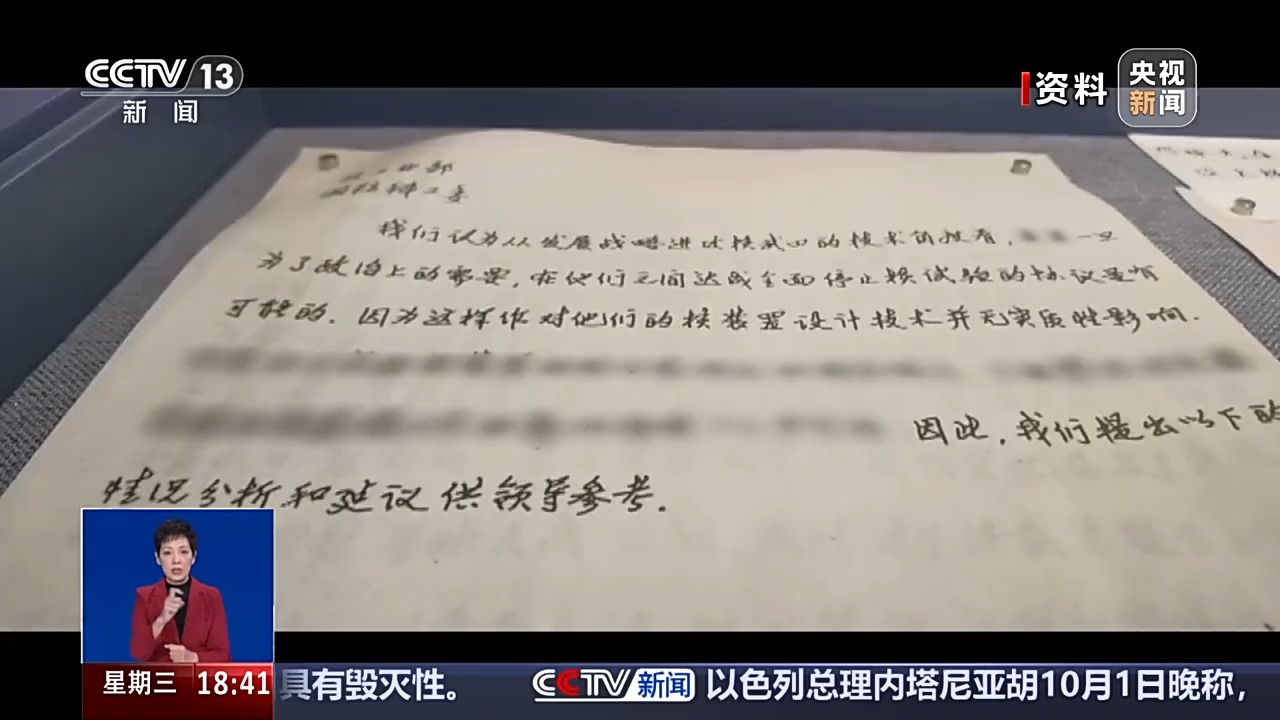 CCTV 13
新闻
资料
央视
新闻
国防科工委
我们认为从发展战略进攻核武器的技术角度看，一旦
为了政治上的需要，在他们之间达成全面停止核试验的协议是有
可能的．因为这样作对他们的核装置设计技术并无实质性影响．
因此，我们提出以下的
情况分析和建议供领导参考．
星期三 18:41 具有毁灭性。 CCTV新闻 以色列总理内塔尼亚胡10月1日晚称，